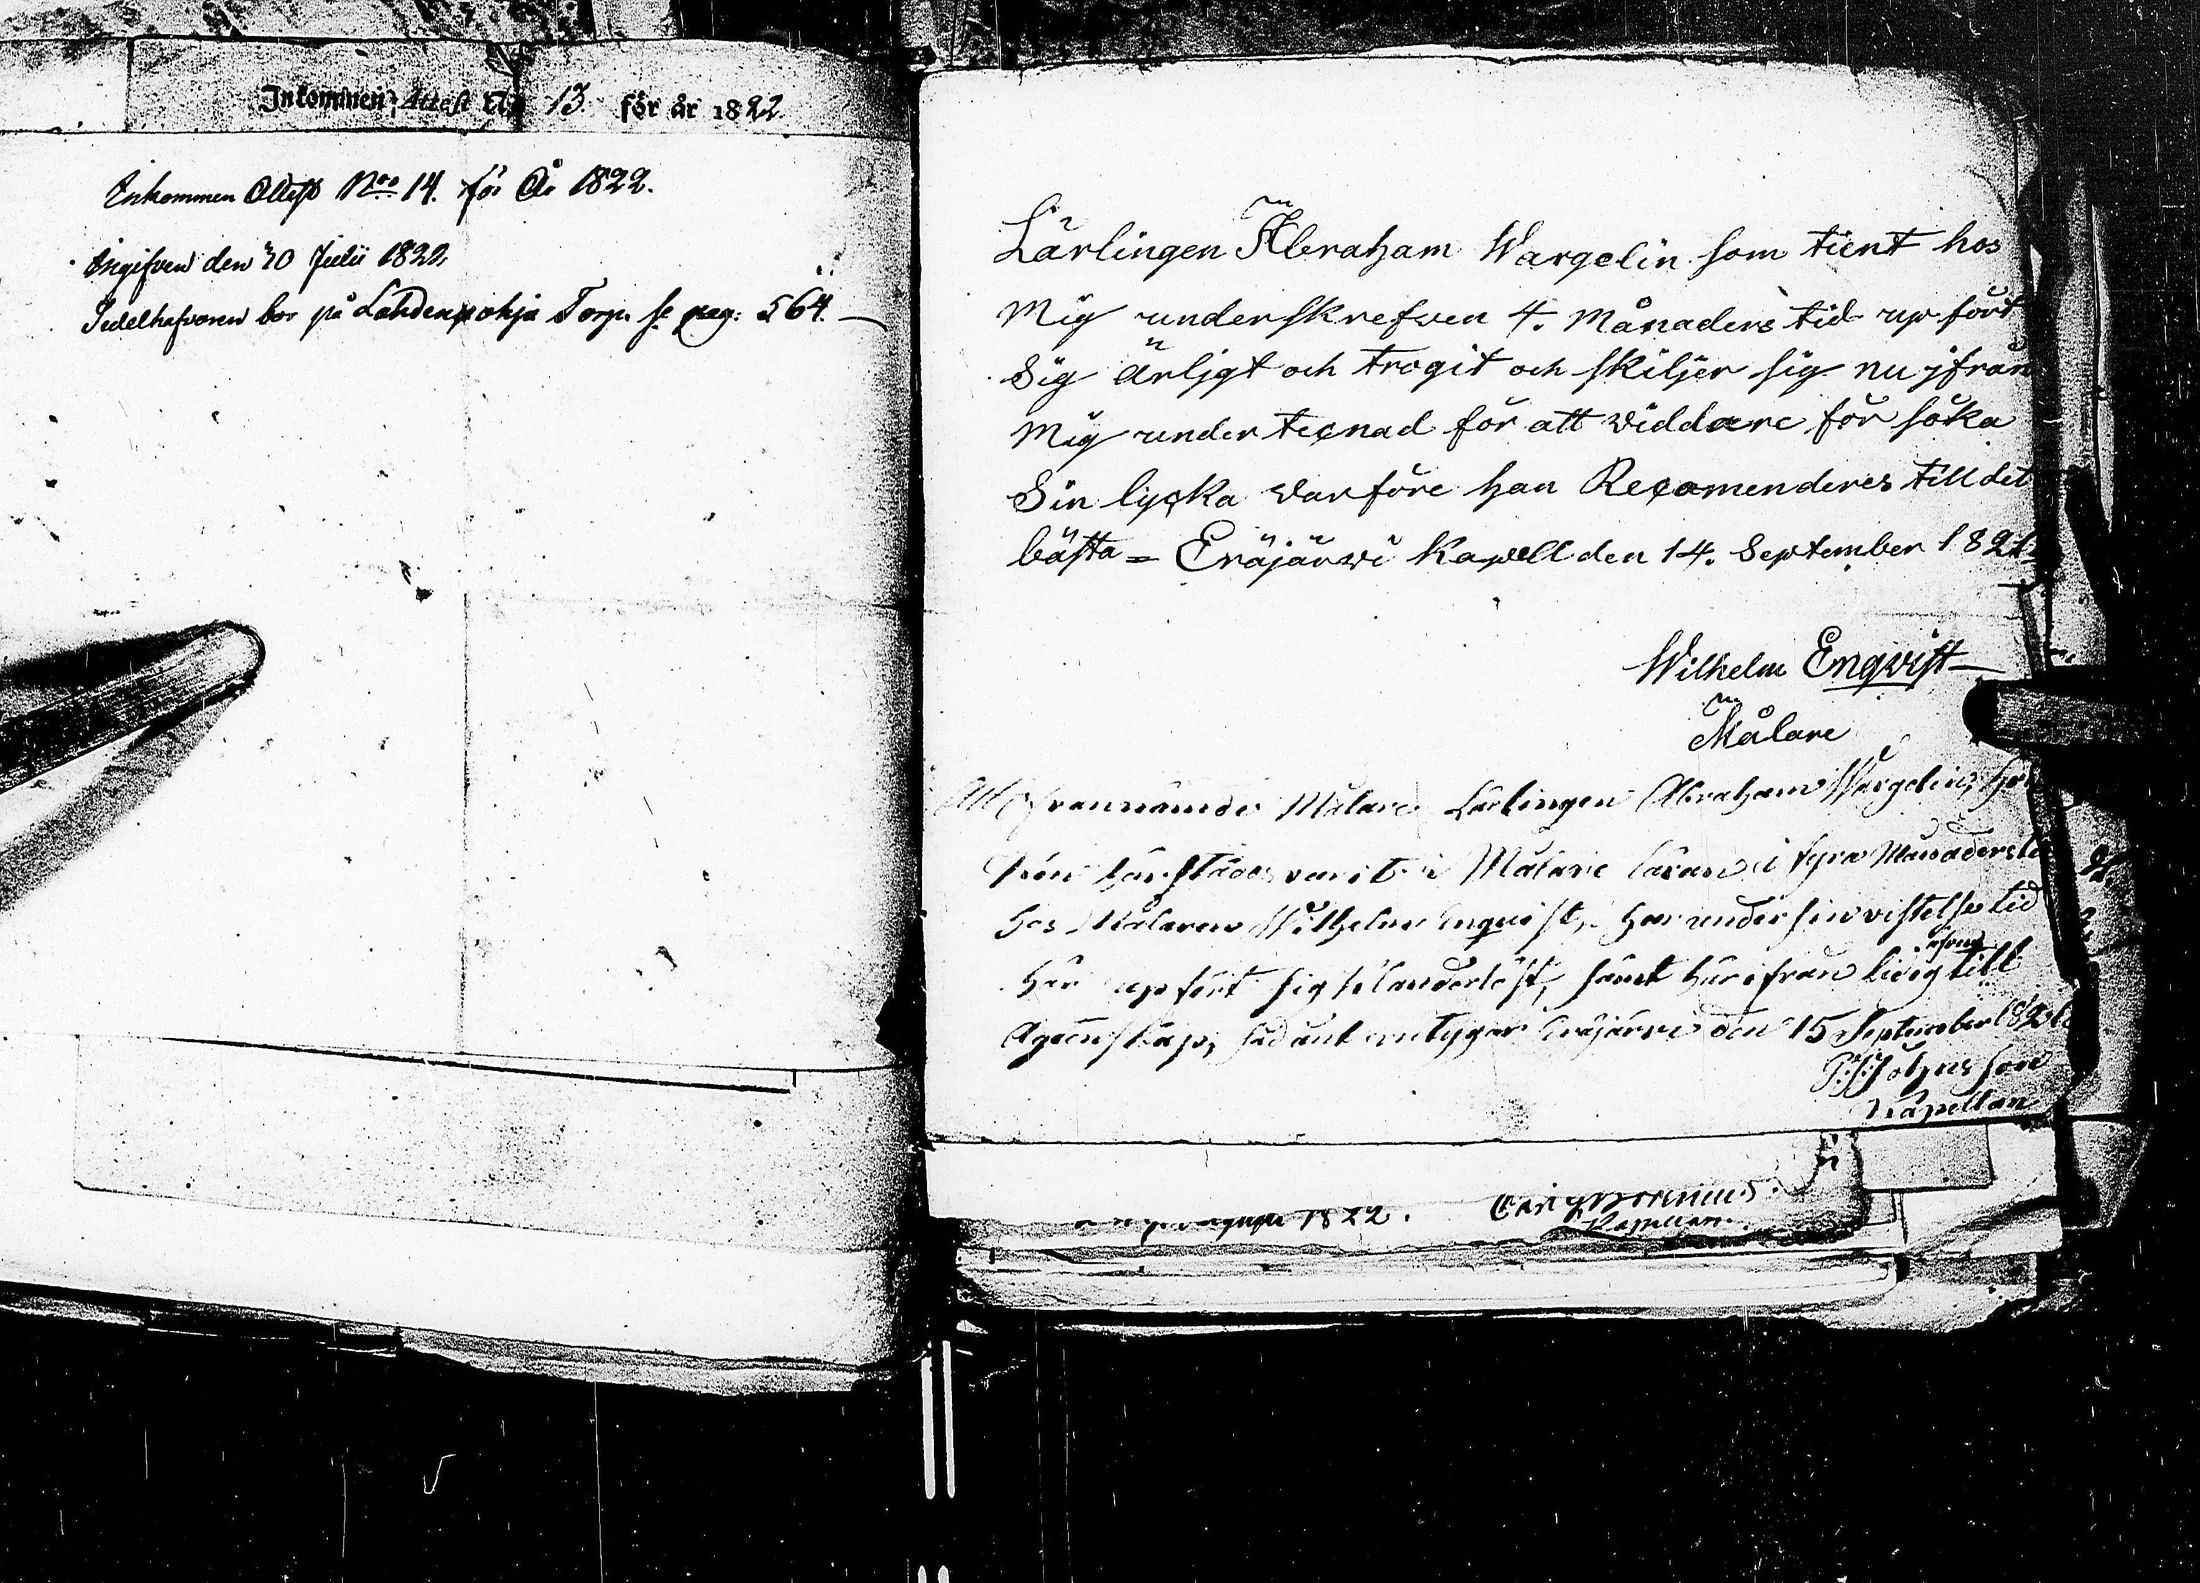 Inkommen Attest N:o 13 för år 1822.
Inkommen Attest N:oo 14. för År 1822.
Ingifven den 30 Julii 1822
Sedelhafvaren bor på Lahdenpohja Torp. se pag: 564.
Lärlingen Abraham Wargelin som tient hos
Mig underskrefwen 4. Månaders tid up fört
Sig Ärligt och trogit och skiljer sig nu jfrån
Mig under tecnad för att widdare för söka
Sin lycka warföre han Recomenderes till det
bästa = Eräjärwi Kapell den 14. September 1821
Wilhelm Enqvist
Målare
Att Målare Lärlingen Abraham Wargelin,
varit i Målare läran i fyra Månaders
hos Målaren Wilhelm Enquist, har under sin vistelse tid
här upfört sig oklanderlöst, samt härifrån ledig till
Ägtenskap, sådant intygar Eräjärvi den 15 September 1821
Kapellan
1822.
Kapellan